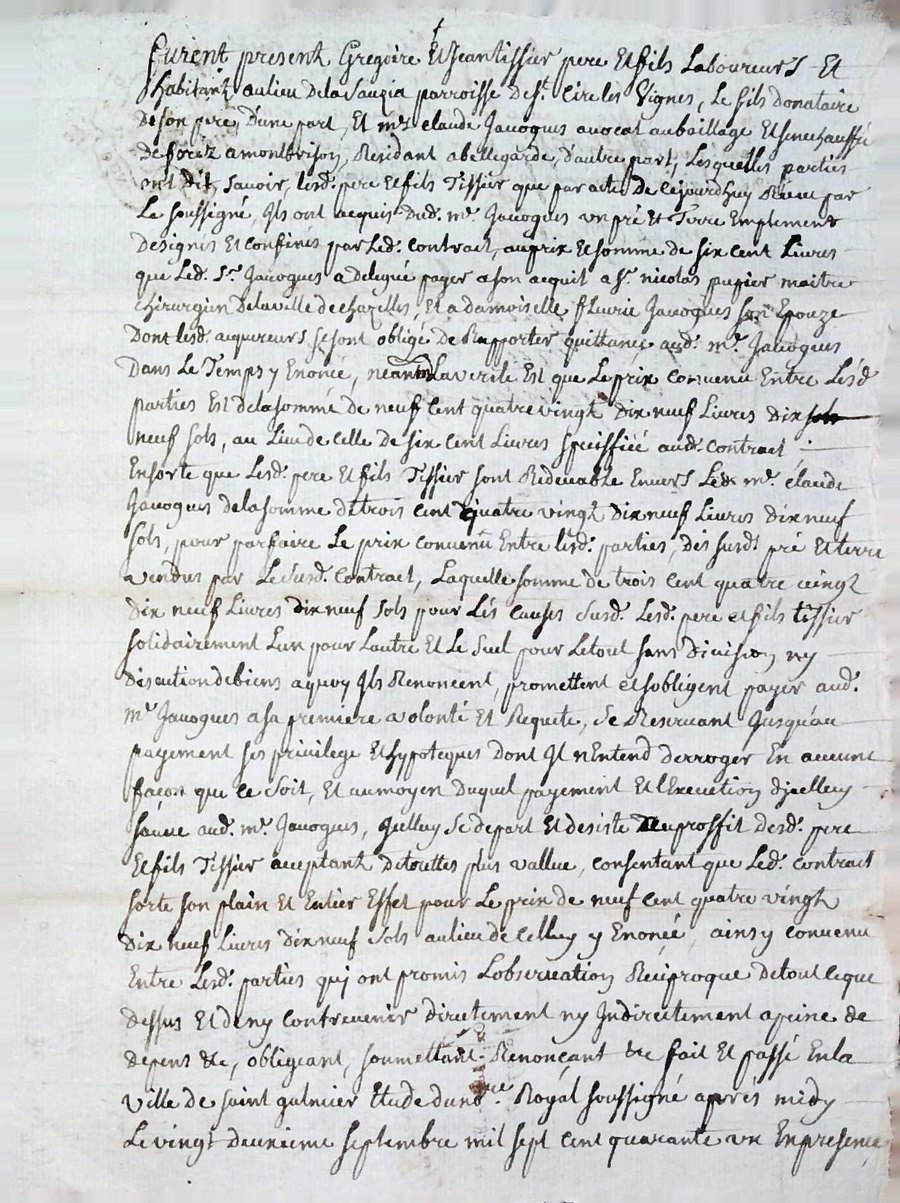 furent present Gregoire Et Jean tissier pere Et fils Laboureurs Et
habitant au lieu de la Sauzia parroisse de St. Cire les Vignes, Le fils donataire
de son pere, d'une part, Et mr. claude Javogues avocat au baillage Et senechaussée
de forez a montbrison, Residant a bellegarde, d'autre part, Lesquelles parties
ont dit, savoir, lesd. pere Et fils Tissier que par acte de cejourd'huy Receu par
Le soussigné, Ils ont acquis dud. mr. Javogues un pré Et Terre Emplement
designés Et confinés par Led. contract, au prix Et somme de six cent Livres
que Led. Sr. Javogues a delegué payer a son acquit a Sr. nicolas pupier maitre
chirurgien de la ville de chazelles, Et a damoiselle fleurie Javogues son Epouze
Dont lesd. acquereurs se sont obligé de Rapporter quittance aud. mr. Javogues
Dans Le Temps y Enoncé, neantm La verité Est que Le prix convenu Entre Lesd.
parties Est de la somme de neuf cent quatre vingt dix neuf Livres dix
neuf sols, au Lieu de celle de six cent Livres speciffiée aud. contract
Ensorte que Lesd. pere Et fils Tissier sont Redevable Envers Led. mr. claude
Javogues de la somme de trois cent quatre vingt dix neuf Livres dix neuf
sols, pour parfaire Le prix convenu Entre lesd. parties, des susd. pré Et terre
vendus par Le susd. contract, Laquelle somme de trois cent quatre vingt
Dix neuf Livres dix neuf sols pour Les causes susd. Lesd. pere et fils tissier
solidairement Lun pour Lautre Et Le seul pour Le tout sans division ny
discution de biens a quoy Ils Renoncent, promettent et sobligent payer aud.
mr. Javogues a sa premiere volonté Et Requete, se Reservant Jusqu'au
payement ses privilege Et hypoteques dont Il n'Entend derroger En aucune
façon que ce soit, Et au moyen duquel payement Et l'Execution d'jcelluy
sauve aud. mr. Javogues, jcelluy se depart Et desiste au proffit desd. pere
Et fils Tissier acceptant de touttes plus vallue, consentant que Led. contract
sorte son plain Et Entier Effet pour Le prix de neuf cent quatre vingt
dix neuf Livres dix neuf sols au lieu de celluy y Enoncé, ainsy convenu
Entre Lesd. parties qui ont promis L'observation Reciproque de tout ce que
dessus Et de ny contrevenir directement ny Indirectement a peine de
depens &c, obligeant, soumettant Renonçant &c fait Et passé En la
ville de saint galmier Etude du nre. Royal soussigné aprés midy
Le vingt deuxieme septembre mil sept cent quarante un En presence